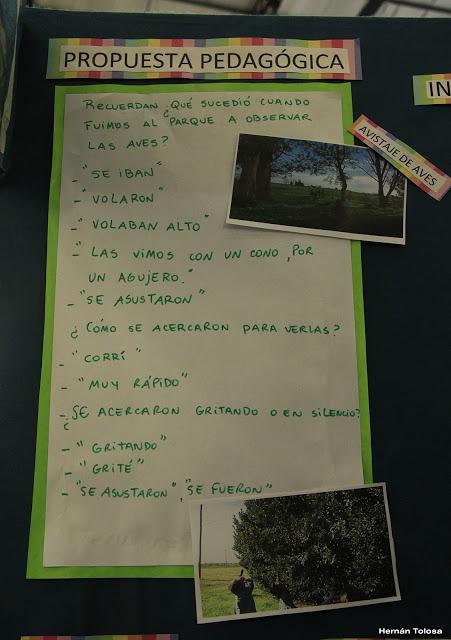 PROPUESTA PEDAGÓGICA
IN
AVISTAJE DE AVES
RECUERDAN ¿QUÉ SUCEDIÓ CUANDO
FUIMOS AL PARQUE A OBSERVAR
LAS AVES?
- "SE IBAN"
- "VOLARON"
- "VOLABAN ALTO"
- "LAS VIMOS CON UN CONO, POR
UN AGUJERO."
- "SE ASUSTARON"
¿CÓMO SE ACERCARON PARA VERLAS?
- "CORRÍ"
- "MUY RÁPIDO"
- ¿SE ACERCARON GRITANDO O EN SILENCIO?
- "GRITANDO"
- "GRITÉ"
- "SE ASUSTARON", "SE FUERON"
Hernán Tolosa